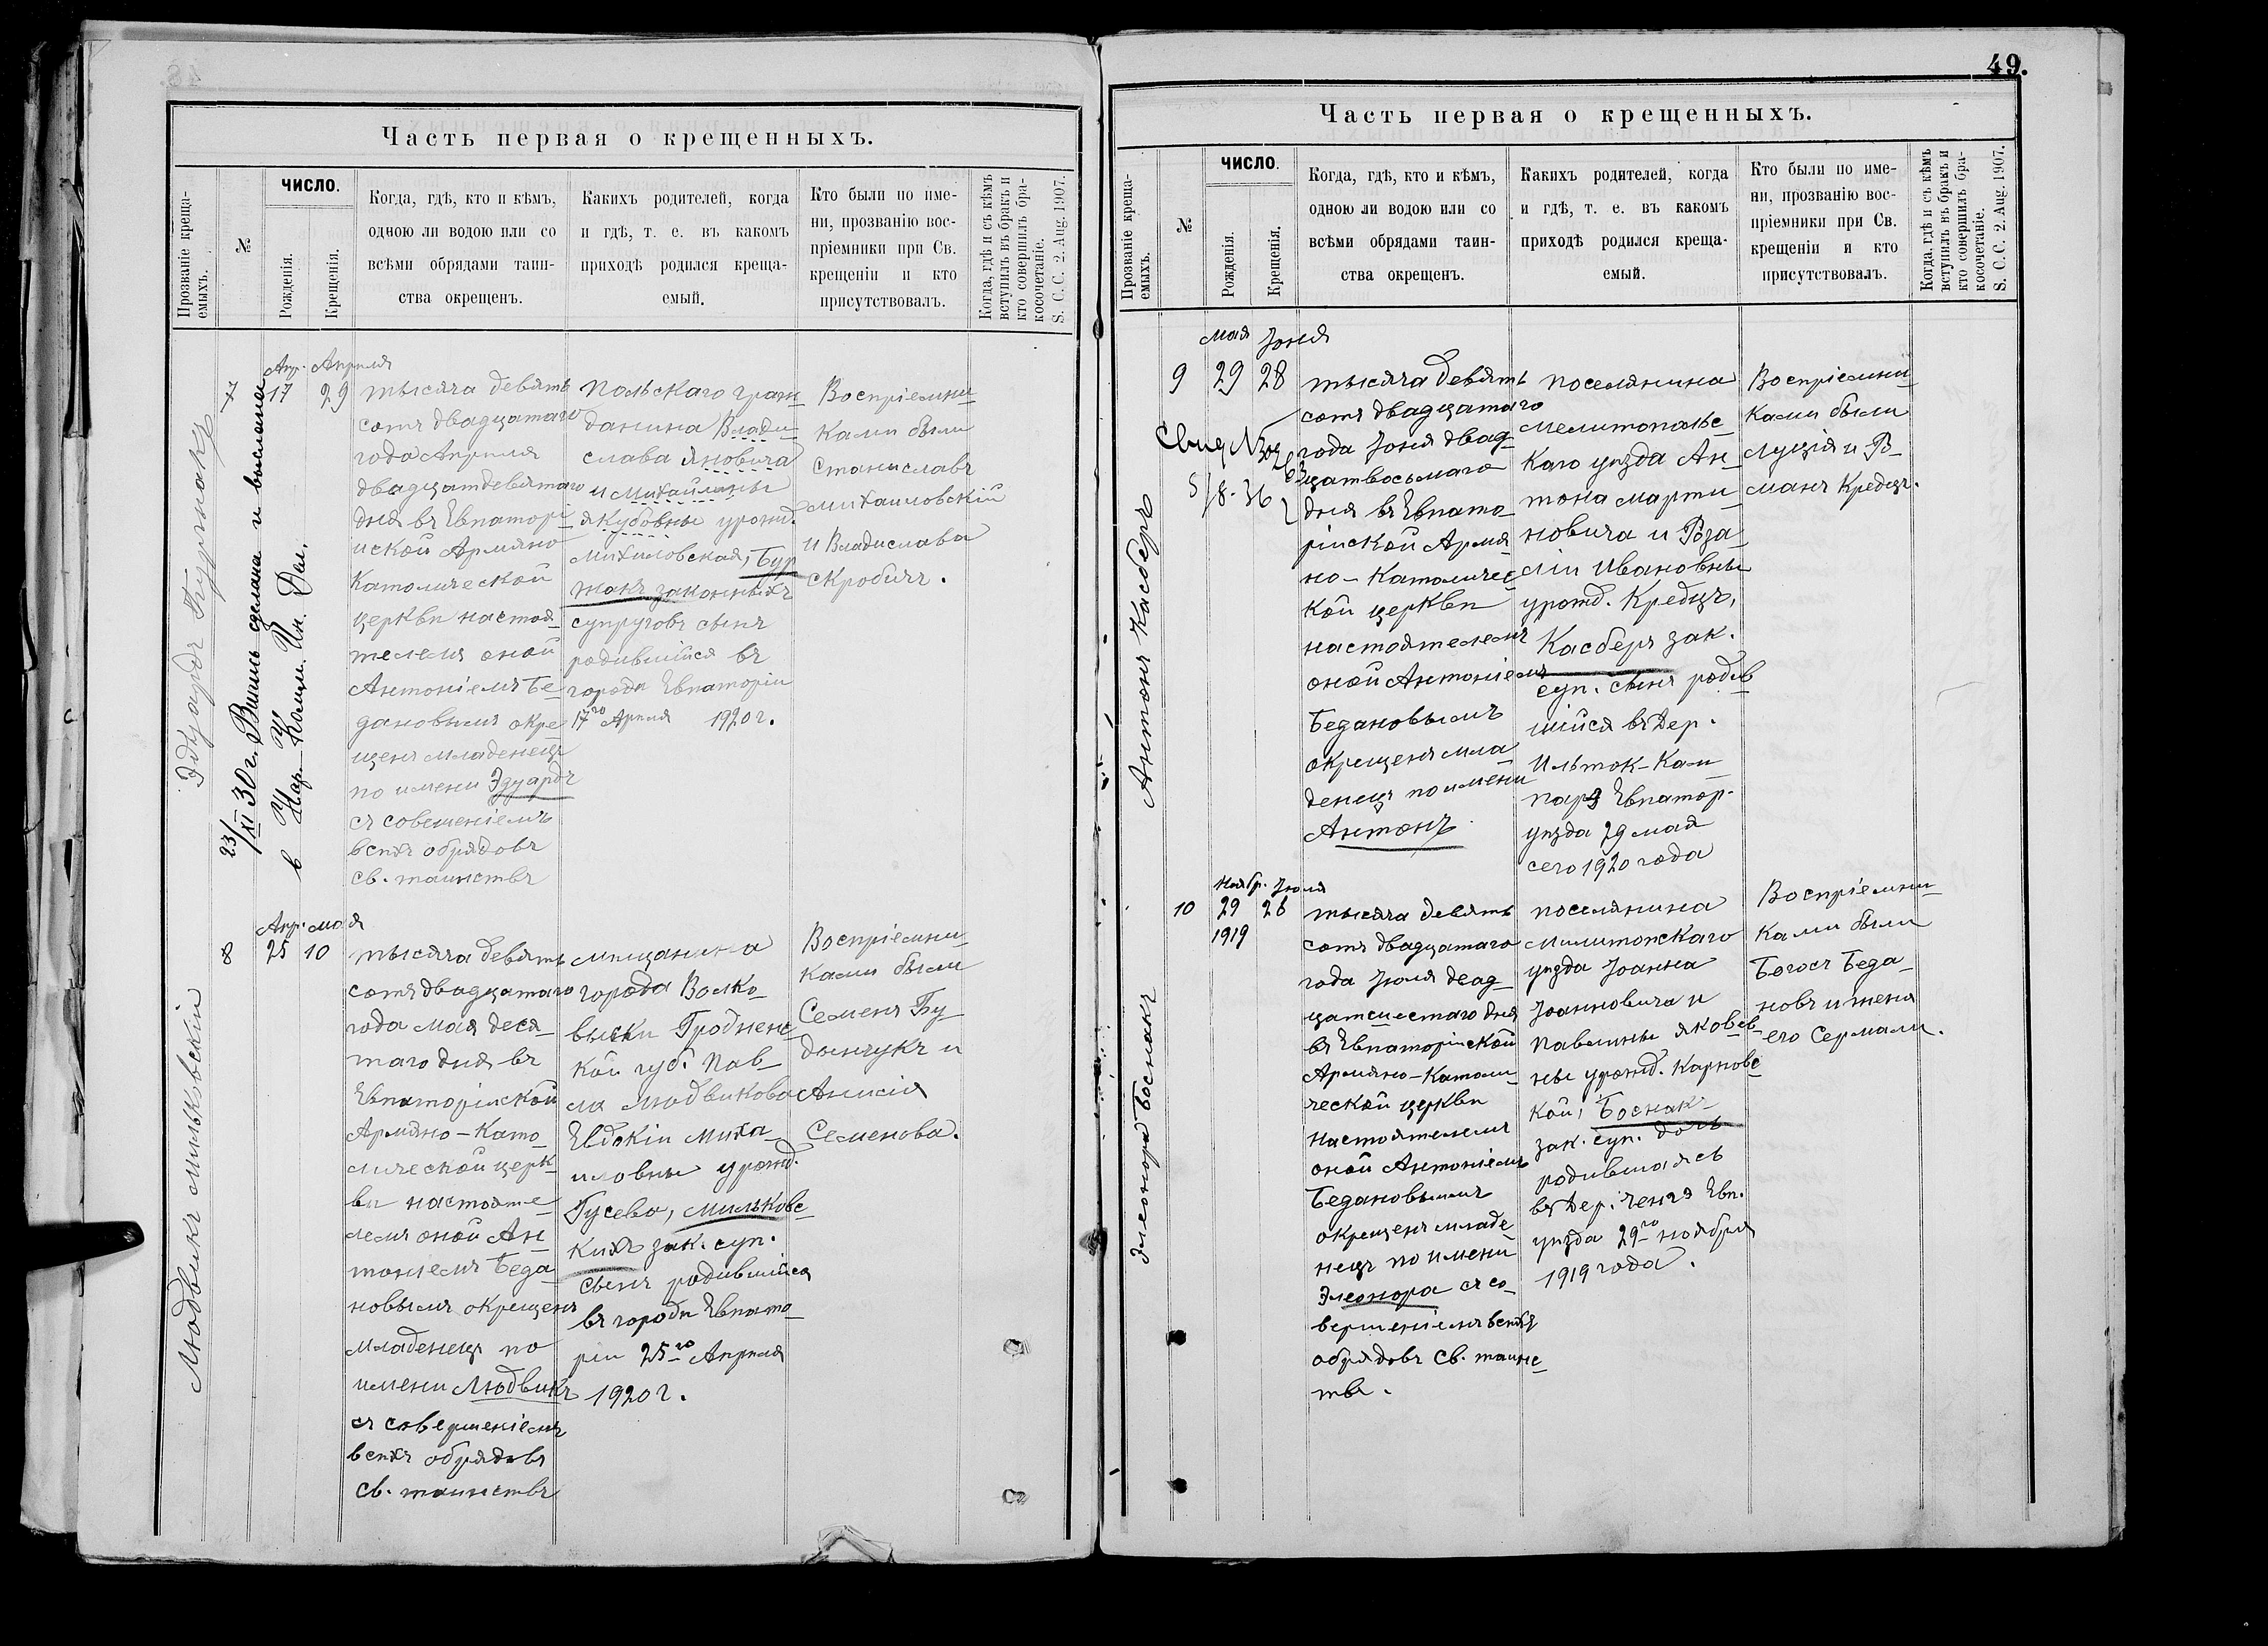 Часть первая о крещенныхъ.
Прозваніе креща-
емыхъ.
№
ЧИСЛО.
Рожденія.
Крещенія.
Когда, гдѣ, кто и кѣмъ,
одною ли водою или со
всѣми обрядами таин-
ства окрещенъ.
Какихъ родителей, когда
и гдѣ, т. е. въ какомъ
приходѣ родился креща-
емый.
Кто были по име-
ни, прозванію вос-
пріемники при Св.
крещеніи и кто
присутствовалъ.
Когда, гдѣ и съ кѣмъ
вступилъ въ бракъ и
кто совершилъ бра-
косочетаніе.
S. C. C. 2. Aug. 1907.
Эдуардъ
7
23/XI 30 г. Выпись сделана и выслана
в Нар. Комис. Ин. Дел.
Апр. Апрѣля
17 29
тысяча девять
сотъ двадцатаго
года Апрѣля
двадцатдевятаго
дня въ Евпаторі
йской Армяно
Католической
церкви настоя-
телемъ оной
Антоніемъ Бе-
дановымъ окре
щенъ младенецъ
по имени Эдуардъ
съ совешеніемъ
всѣхъ обрядовъ
св. таинствъ
Польскаго граж-
данина Влади-
слава Яновича
и Михайлины
Якубовны урожд.
Михаловская, Бур
жакъ законныхъ
супруговъ сынъ
родившійся въ
городѣ Евпаторіи
17го Апрѣля 1920 г.
Воспріемни-
ками были
Станиславъ
Михаиловскій
и Владислава
Скробичъ.
Людвикъ Мильковскій
8
Апр. мая
25 10
тысяча девять
сотъ двадцатаго
года мая деся-
таго дня въ
Евпаторійской
Армяно-Като-
лической церк-
ви настояте-
лемъ оной Ан-
тоніемъ Беда-
новымъ окрещенъ
младенецъ по
имени Людвикъ
съ совершеніемъ
всѣхъ обрядовъ
св. таинствъ
мѣщанина
города Волко-
выски Гродненс-
кой губ. Пав-
ла Людвикова
Евдокіи Миха-
иловны урожд.
Гусева, Мильковс-
кихъ зак. суп.
сынъ родившійся
въ городѣ Евпато-
ріи 25го Апрѣля
1920 г.
Воспріемни-
ками были
Семенъ Бу-
дынчукъ и
Анисія
Семенова.
49.
Часть первая о крещенныхъ.
Прозваніе креща-
емыхъ.
№
ЧИСЛО.
Рожденія.
Крещенія.
Когда, гдѣ, кто и кѣмъ,
одною ли водою или со
всѣми обрядами таин-
ства окрещенъ.
Какихъ родителей, когда
и гдѣ, т. е. въ какомъ
приходѣ родился креща-
емый.
Кто были по име-
ни, прозванію вос-
пріемники при Св.
крещеніи и кто
присутствовалъ.
Когда, гдѣ и съ кѣмъ
вступилъ въ бракъ и
кто совершилъ бра-
косочетаніе.
S. C. C. 2. Aug. 1907.
Антонъ Касберъ
мая Іюня
9 29 28
5/8-36
тысяча девять
сотъ двадцатаго
года Іюня двад-
цатвосьмаго
дня въ Евпато-
рійской Армя-
но-Католичес
кой церкви
настоятелемъ
оной Антоніемъ
Бедановымъ
окрещенъ мла-
денецъ по имени
Антонъ
поселянина
мелитопальс-
каго уѣзда Ан-
тона Марти-
новича и Роза-
ліи Ивановны
урожд. Кредцъ,
Касберъ зак.
суп. сынъ родив
шійся въ Дер.
Ильток-Кам-
паръ Евпатор.
уѣзда 29 мая
сего 1920 года
Воспріемни-
ками были
Луція и Ро-
манъ Кредцъ.
Элеонора Боснакъ
Ноябр. Іюля
10 29 26
1919
тысяча девять
сотъ двадцатаго
года Іюля двад-
цатшестаго дня
въ Евпаторійской
Армяно-Католи-
ческой церкви
настоятелемъ
оной Антоніемъ
Бедановымъ
окрещенъ младе
нецъ по имени
Элеонора съ со-
вершеніемъ всѣхъ
обрядовъ св. таинс
твъ.
поселянина
Милитопскаго
уѣзда Іоанна
Іоанновича и
Павлины Яковлев-
ны урожд. Карповс
кой, Боснакъ
зак. суп. дочь
родившаясь
въ Дер. Ченгэ Евп.
уѣзда 29го ноября
1919 года.
Воспріемни-
ками были
Богосъ Беда-
новъ и жена
его Сермали.